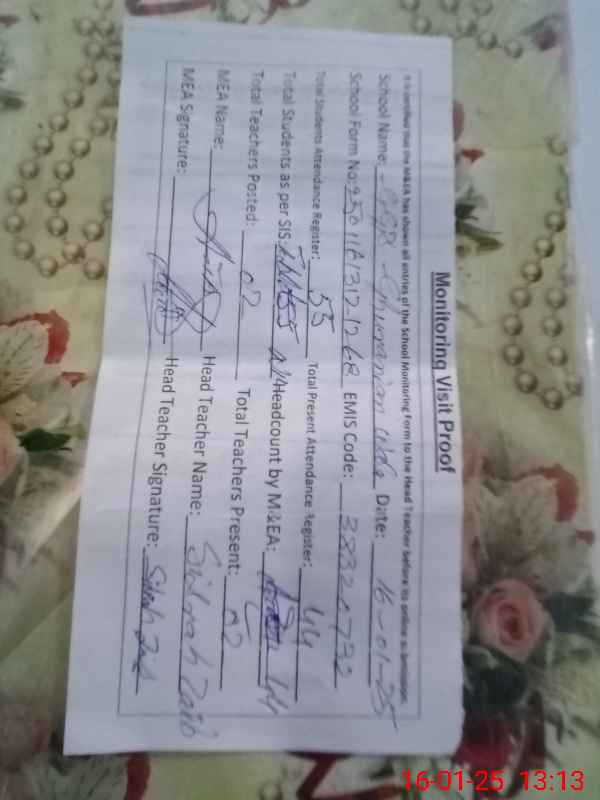 Monitoring Visit Proof
It is certified that the M&EA has shown all entries of the School Monitoring Form to the Head Teacher before its online submission.
School Name: Date: 16-01-25
School Form No: EMIS Code: 38320772
Total Students Attendance Register: 55 Total Present Attendance Register: 44
Total Students as per SIS: Headcount by M&EA: 44
Total Teachers Posted: 02 Total Teachers Present: 02
MEA Name: Head Teacher Name: Sidrah Zaib
MEA Signature: Head Teacher Signature:
16-01-25 13:13